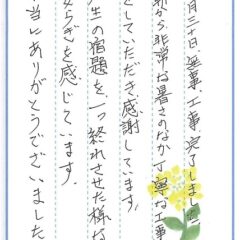 月三十日、無事、工事完了しました。
から非常な暑さのなか丁寧な工事
としていただき感謝しています。
生の宿題を一つ終れさせた様な
安らぎを感じています。
当にありがとうございました